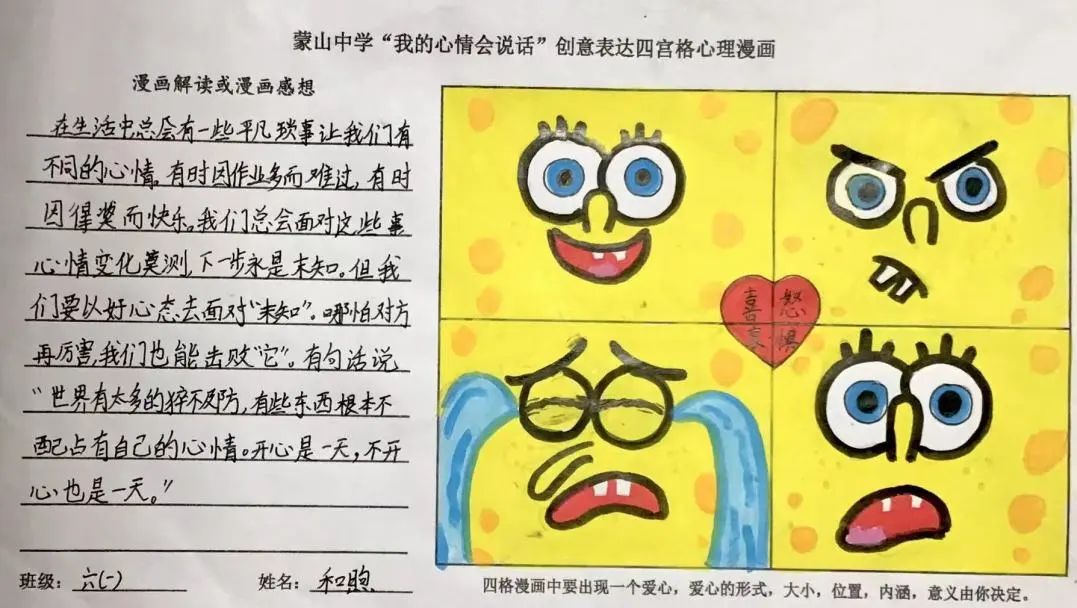 蒙山中学“我的心情会说话”创意表达四宫格心理漫画
漫画解读或漫画感想
在生活中总会有一些平凡琐事让我们有
不同的心情。有时因作业多而难过,有时
因得奖而快乐。我们总会面对这些事
心情变化莫测,下一步永是未知。但我
们要以好心态去面对“未知”。哪怕对方
再厉害,我们也能击败“它”。有句话说
“世界有太多的猝不及防,有些东西根本不
配占有自己的心情。开心是一天,不开
心也是一天。”
班级:六(一) 姓名:和煦
喜 怒
哀 惧
四格漫画中要出现一个爱心,爱心的形式,大小,位置,内涵,意义由你决定。